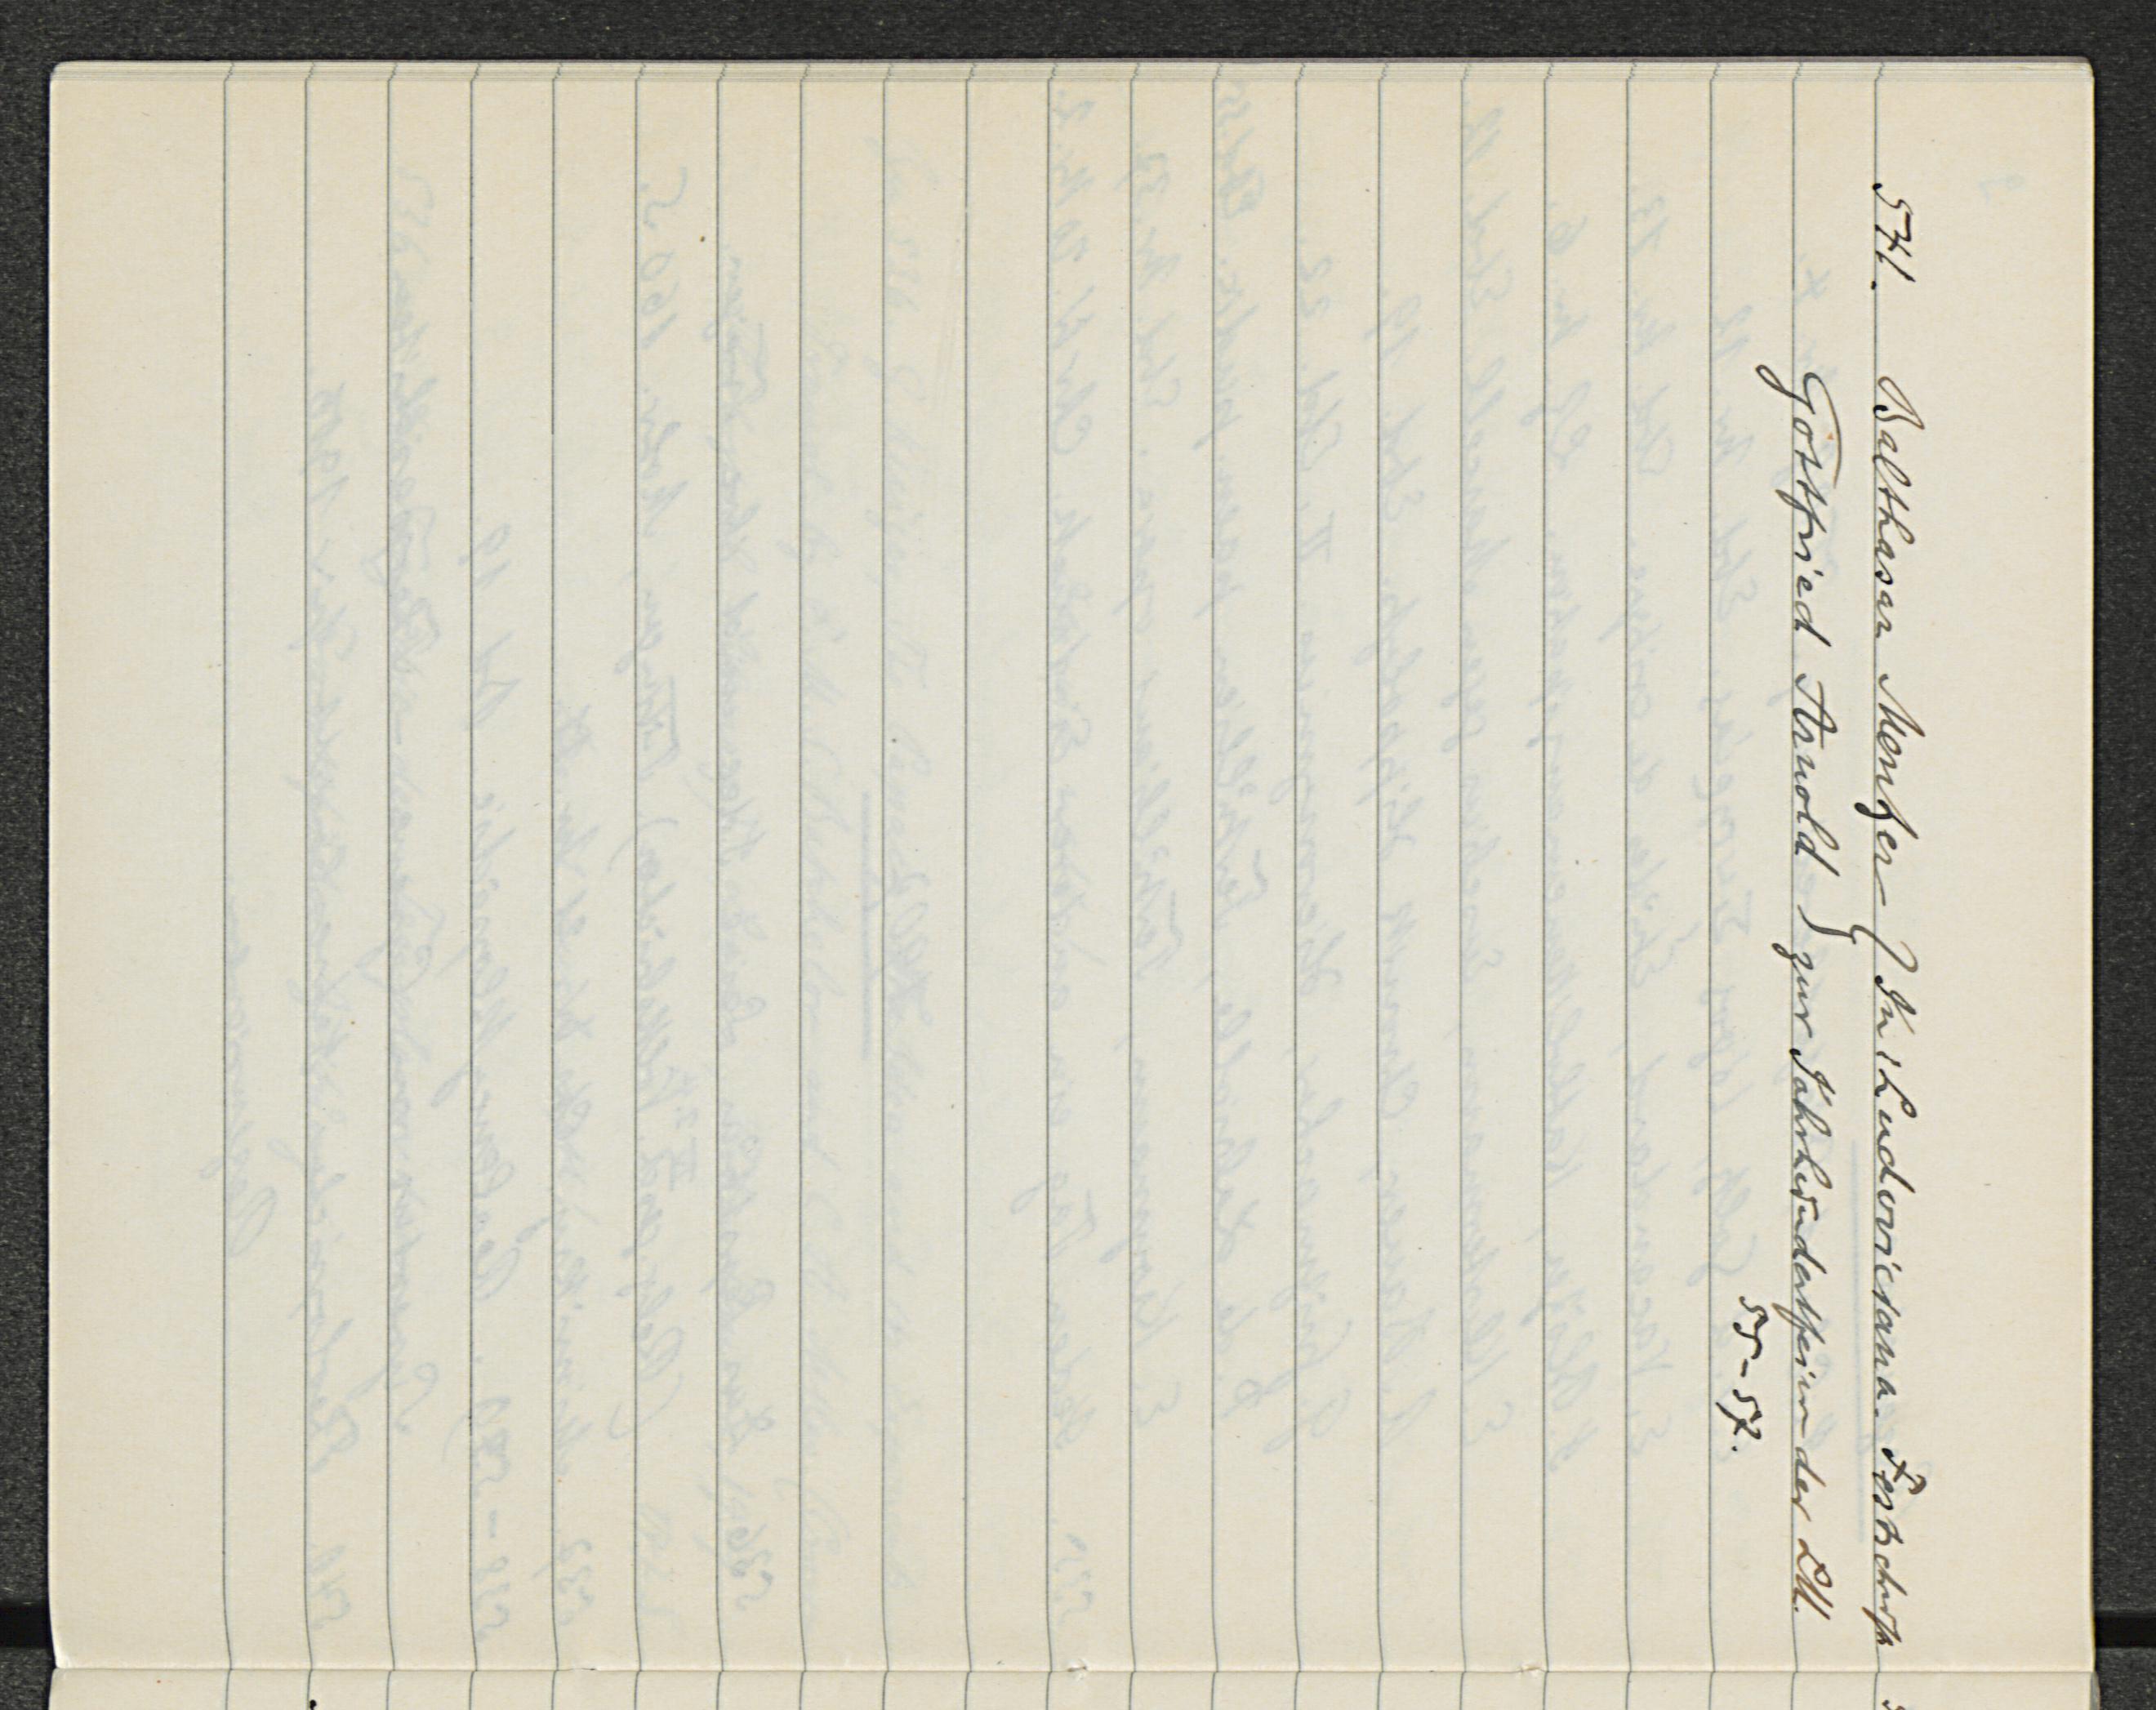 541. Balthasar Mentzer } In: Ludoviciana. Festschrift
Gottfried Arnold } zur Jahrhundertfeier der LU.
55-57.